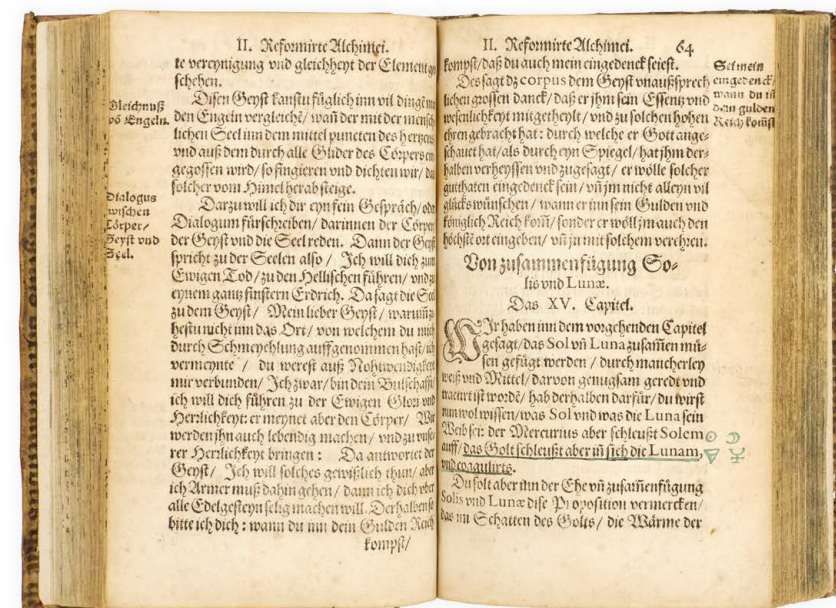 II. Reformirte Alchimei.
te vereynigung vnd gleichheyt der Element
schehen.
Gleichnuß
võ Engeln.
Disen Geyst kanstu füglich inn vil dingẽ
den Engeln vergleichẽ/ wañ der mit der
lichen Seel inn dem mittel puncten des hertzens
vnd auß dem durch alle Glider des Cörpers
gegossen wird/ so fingieren vnd dichten wir/
solcher vom Himel herab steige.
Dialogus
zwischen
Cörper/
Geyst vnd
Seel.
Darzu will ich dir eyn fein Gespräch/ oder
Dialogum fürschreiben/ darinnen der Cörper
der Geyst vnd die Seel reden. Dann der Geyst
spricht zu der Seelen also/ Ich will dich zum
Ewigen Tod/ zu den Hellischen führen/ vnd zu
eynem gantz finstern Erdrich. Da sagt die Seel
zu dem Geyst/ Mein lieber Geyst/ warumb
hestu nicht inn das Ort/ von welchem du mich
durch Schmeychlung auffgenommen hast/ ich
vermeynte/ du werest auß Nohtwendigkeit
mir verbunden/ Ich zwar/ bin dein
ich will dich führen zu der Ewigen Glori vnd
Herrlichkeyt: er meynet aber den Cörper/ Wir
werden jhn auch lebendig machen/ vnd zu vnse-
rer Herrlichkeyt bringen: Da antwortet der
Geyst/ Ich will solches gewißlich thun/ aber
ich Armer muß dahin gehen/ dann ich dich vber
alle Edelgesteyn selig machen will. Derhalben so
bitte ich dich: wann du inn dein Gulden Reich
kompst/
II. Reformirte Alchimei. 64
kompst/ daß du auch mein eingedenck seiest.
Sei mein
eingedenck/
wann du iñ
dein gulden
Reich komst
Des sagt dz corpus dem Geyst vnaußsprech
lichen grossen danck/ daß er jhm sein Essentz vnd
wesenlichkeyt mitgetheylt/ vnd zu solchen hohen
ehren gebracht hat: durch welche er Gott ange-
schauet hat/ als durch eyn Spiegel/ hat jhm der-
halben verheyssen vnd zugesagt/ er wölle solcher
gutthaten eingedenck sein/ vñ jm nicht alleyn vil
glücks wünschen/ wann er inn sein Gulden vnd
königlich Reich kom̃/ sonder er wöll jm auch den
höchstẽ ort eingeben/ vñ jn mit solchem verehren.
Von zusammenfügung So-
lis vnd Lunæ.
Das XV. Capitel.
WIr haben inn dem vorgehenden Capitel
gesagt/ das Sol vñ Luna zusam̃en mü-
sen gefügt werden/ durch mancherley
weiß vnd Mittel/ darvon genugsam geredt vnd
tractirt ist wordẽ/ hab derhalben darfür/ du wirst
nun wol wissen/ was Sol vnd was die Luna sein
Weib sei: der Mercurius aber schleußt Solem
auff/ das Golt schleußt aber iñ sich die Lunam,
vnd coagulirts.
☉ ☾
Du solt aber inn der Ehe vñ zusam̃enfügung
Solis vnd Lunæ dise Proposition vermercken/
das im Schatten des Golts/ die Wärme der